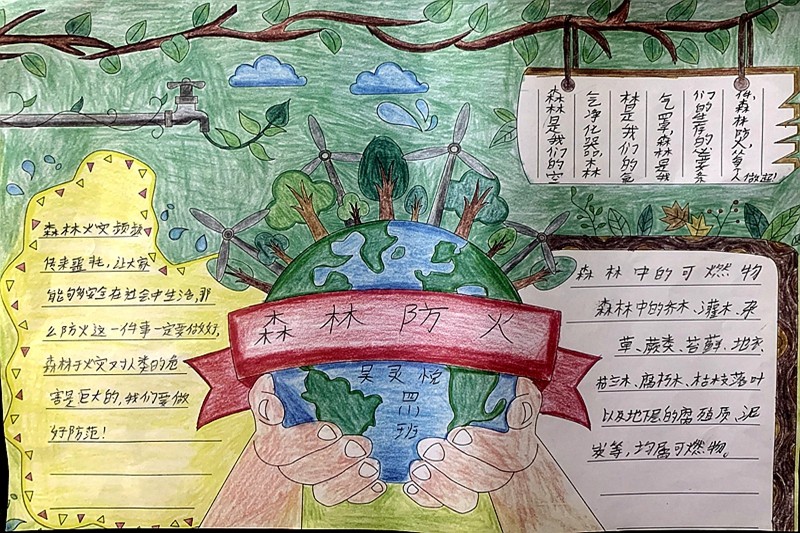 森林是我们的空
气净化器,森
林是我们的氧
气罩,森林是我
们的生存的
件,森林防火,每个人
做起!
森林火灾频频
传来噩耗,让大家
能够安全在社会中生活,那
么防火这一件事一定要做好,
森林于火灾对人类的危
害是巨大的,我们要做
好防范!
森林防火
吴灵悦
班
森林中的可燃物
森林中的乔木、灌木、杂
草、蕨类、苔藓、地衣、
木、腐朽木、枯枝落叶
以及地层的腐殖质、泥
炭等,均属可燃物。